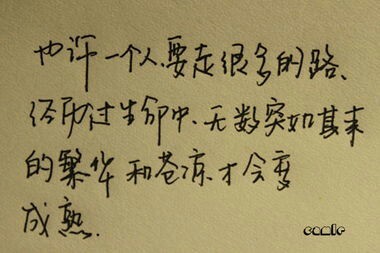 也许一个人、要走很多的路、
经历过生命中、无数突如其来
的繁华和苍凉.才会变
成熟.